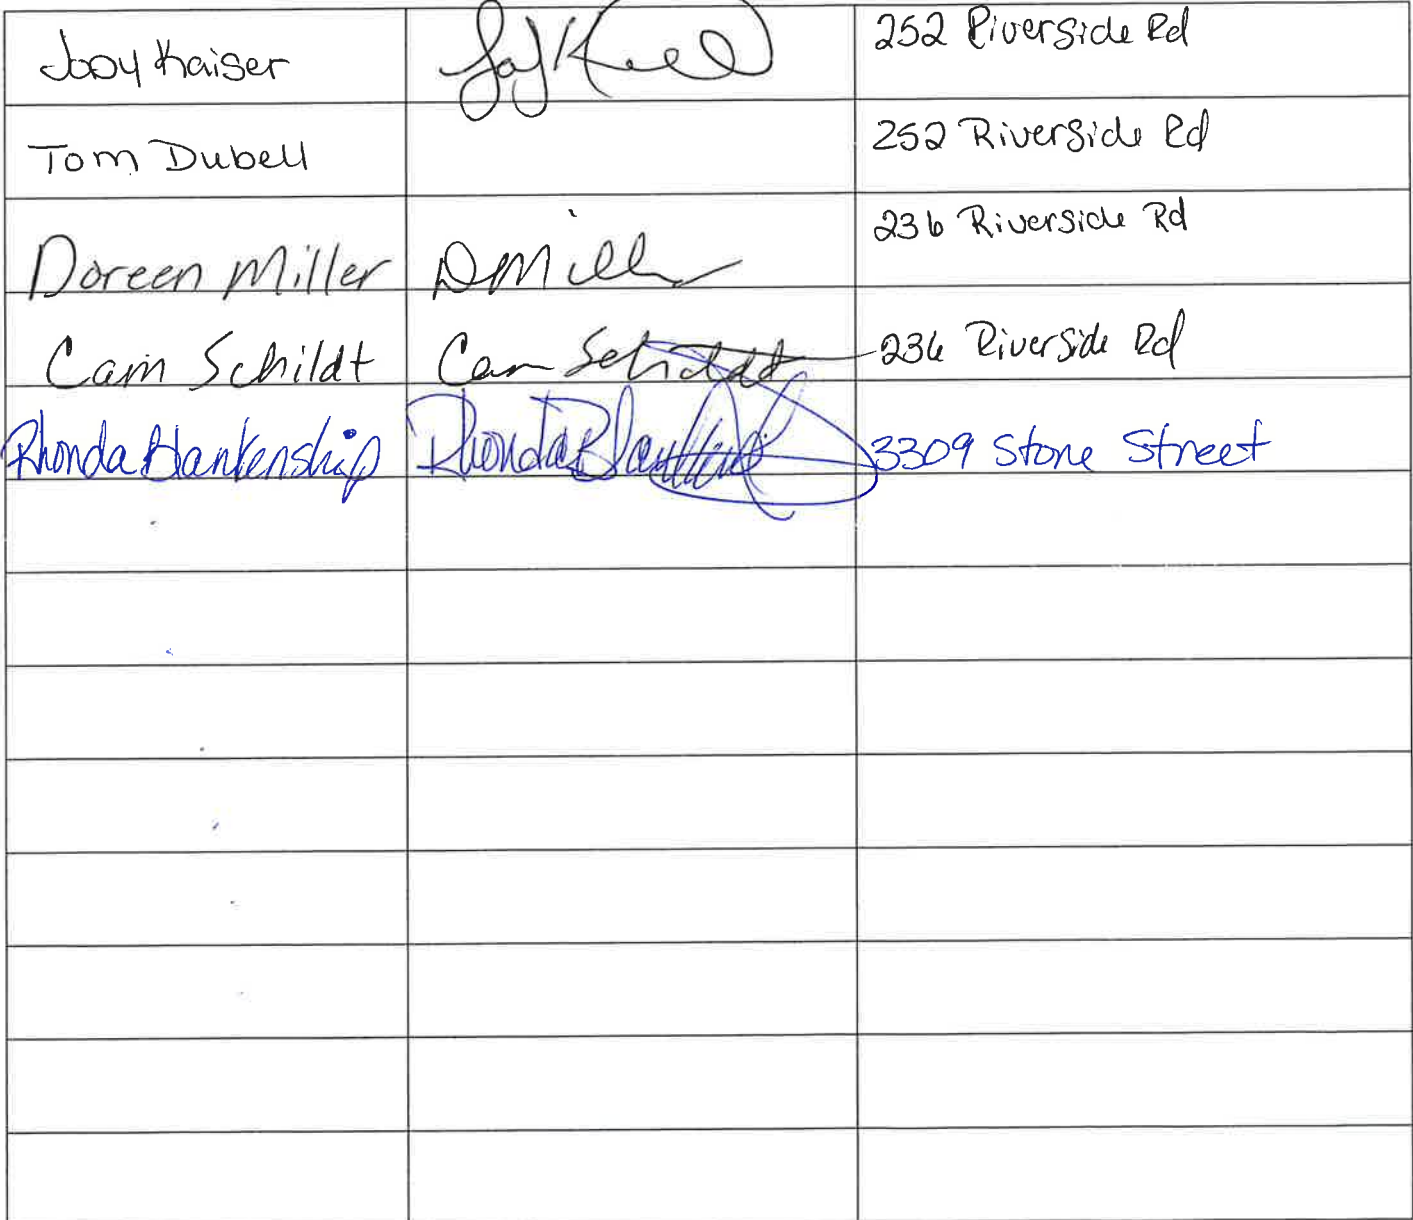 Jody Kaiser 252 Riverside Rd
Tom Dubell 252 Riverside Rd
Doreen Miller DMiller 236 Riverside Rd
Cam Schildt Cam Schildt 236 Riverside Rd
Rhonda Blankenship Rhonda Blankenship 3309 Stone Street